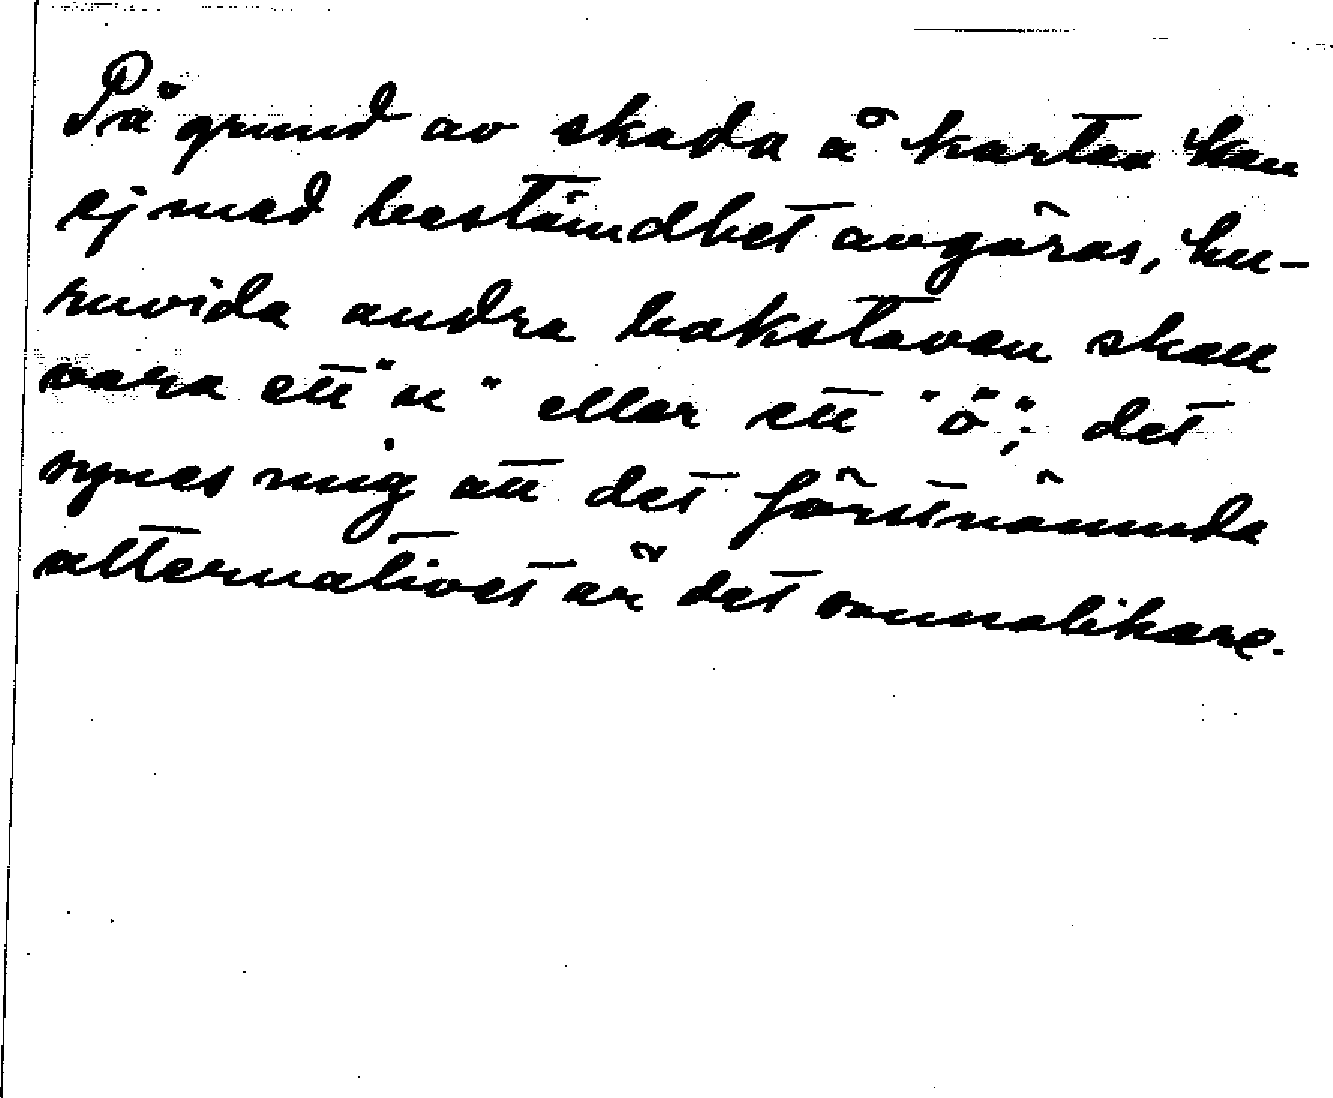 På grund av skada å kartan kan
ej med bestämdhet avgöras, hu-
ruvida andra bokstaven skall
vara ett "u" eller ett "ö"; det
synes mig att det förstnämnda
alternativet är det sannolikare.